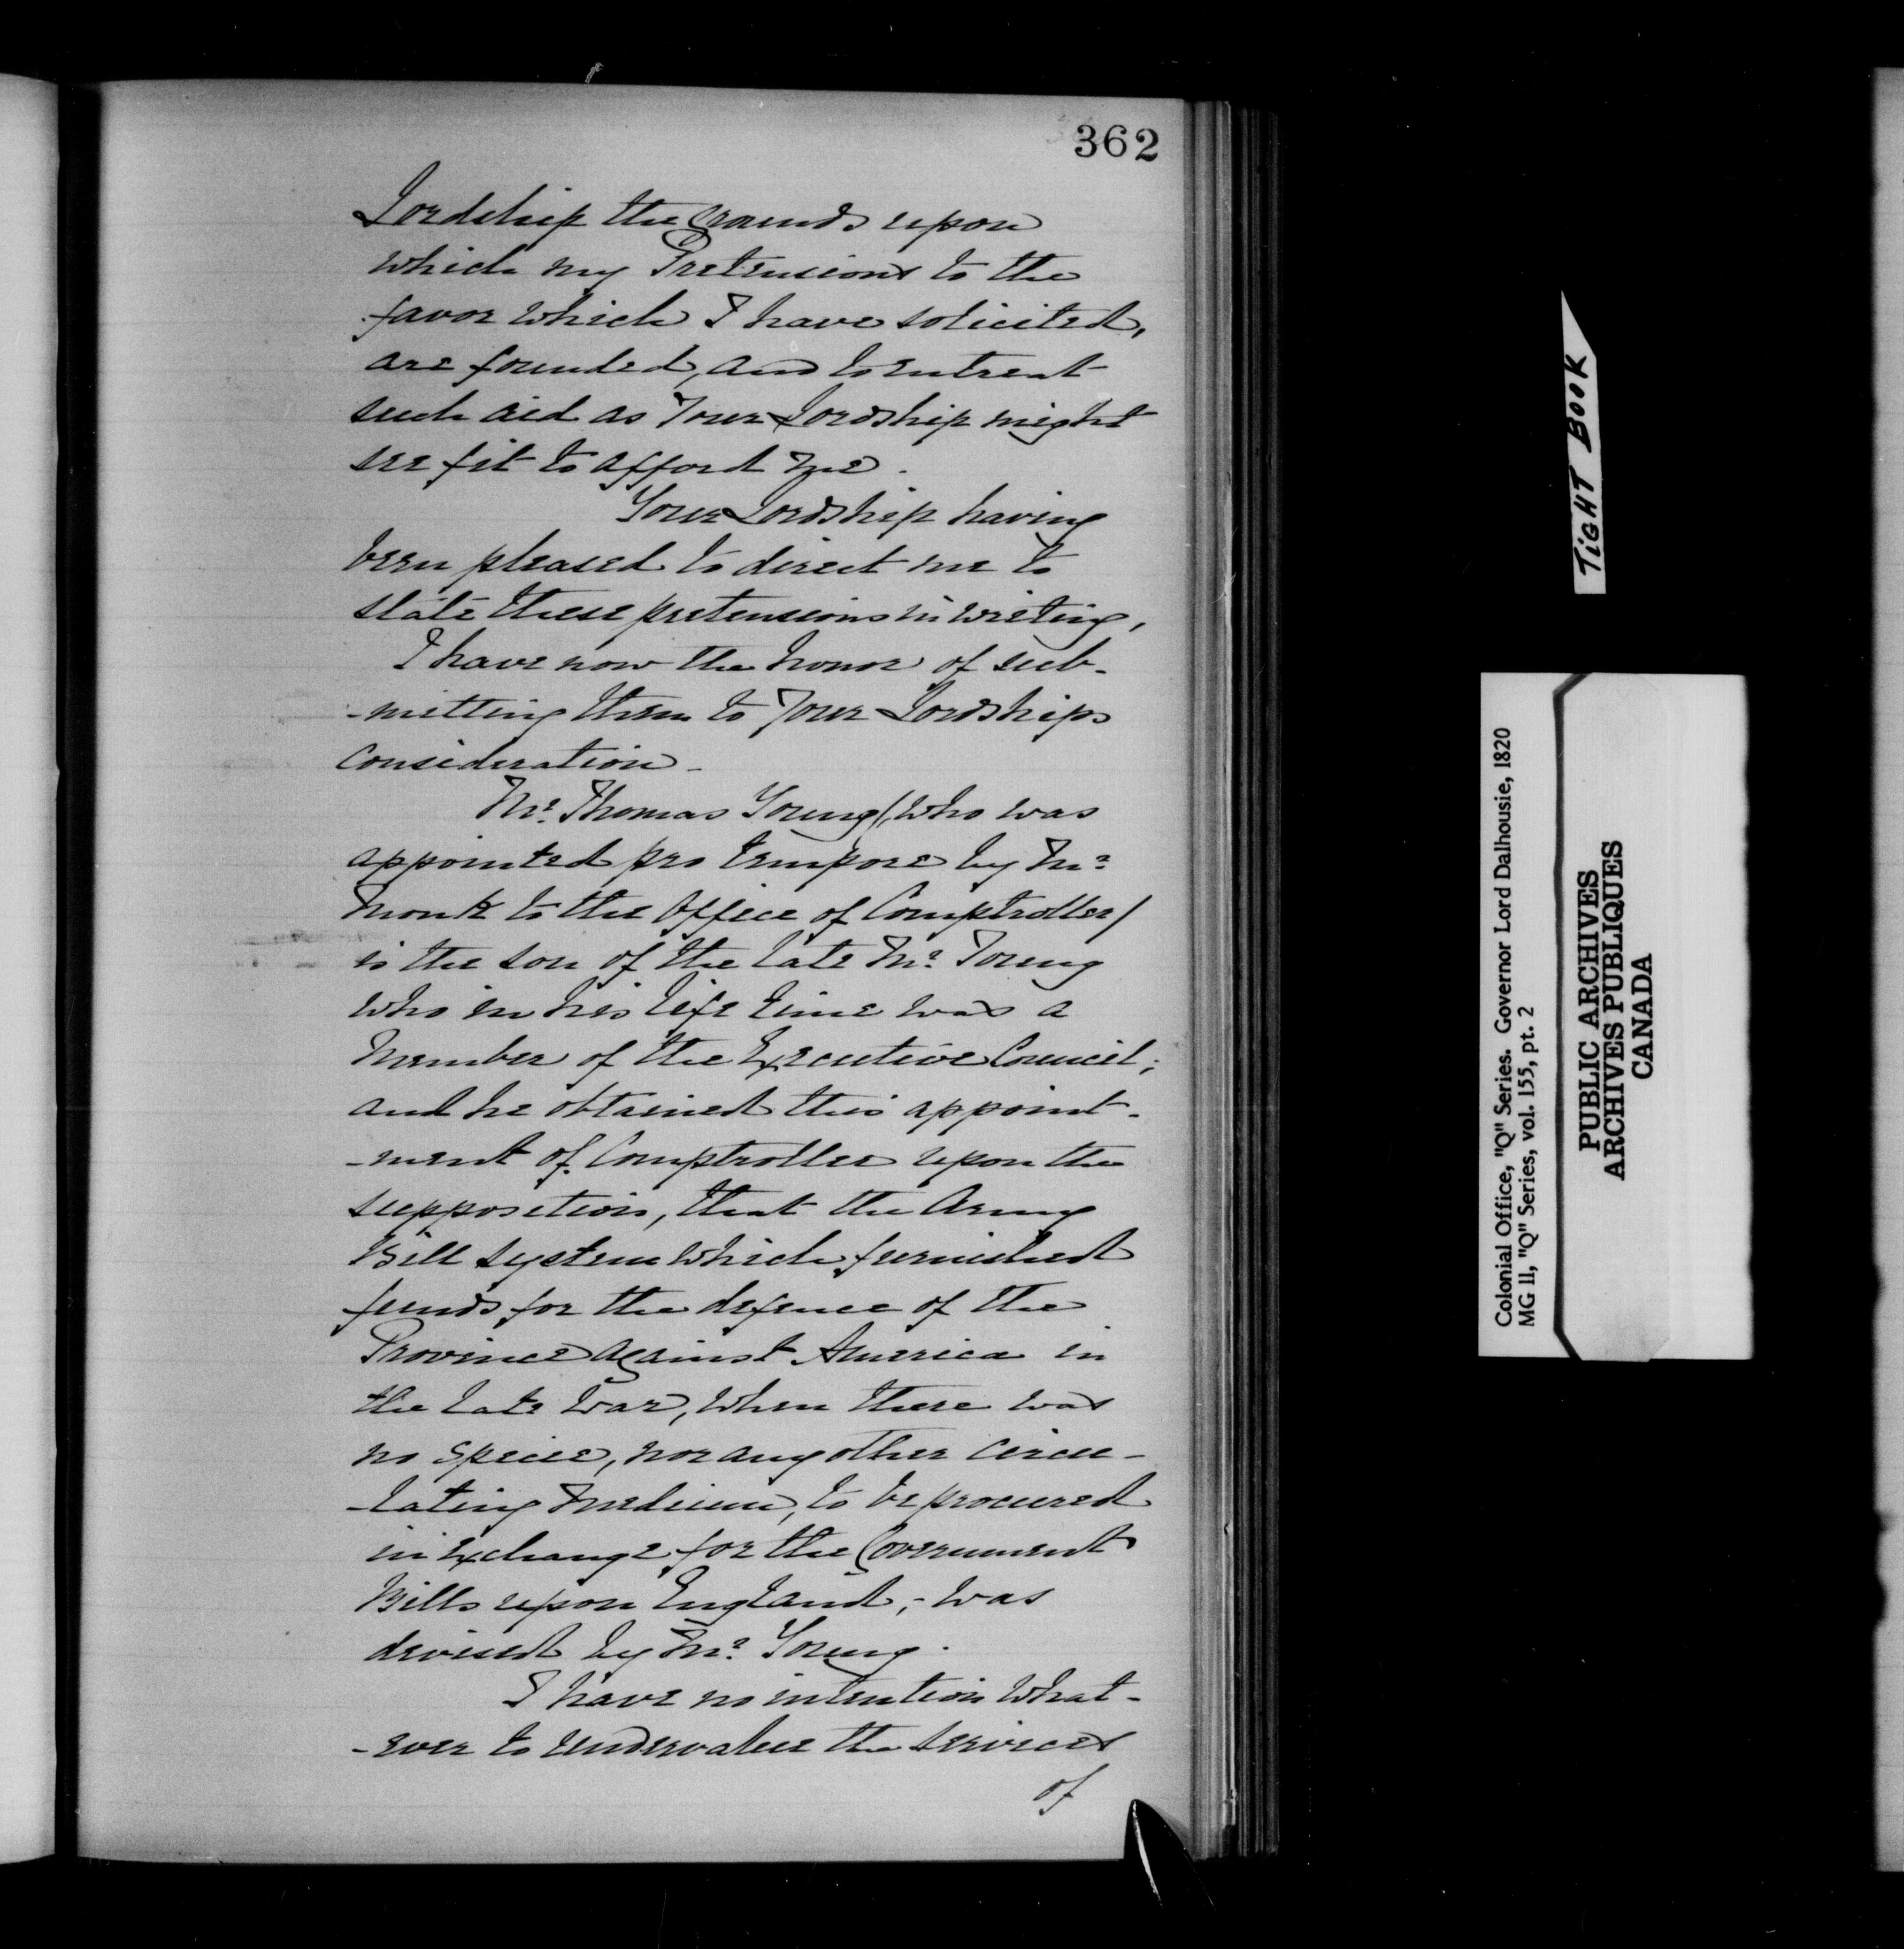 362
Lordship the Grounds upon
which my Pretensions to the
favor which I have solicited,
are founded, and to entreat
such aid as Your Lordship might
see fit to afford me.
Your Lordship having
been pleased to direct me to
state these pretensions in writing,
I have now the honor of sub-
-mitting them to Your Lordships
consideration -
Mr. Thomas Young (who was
appointed pro tempore by Mr.
Monk to the Office of Comptroller/
is the son of the late Mr. Young
who in his life time was a
Member of the Executive Council;
and he obtained this appoint-
-ment of Comptroller upon the
supposition, that the Army
Bill system which furnished
funds for the defence of the
Province against America in
the late War, when there was
no specie, nor any other circu-
-lating Medium, to be procured
in exchange for the Government
Bills upon England,- was
devised by Mr. Young.
I have no intention what-
-ever to undervalue the services
of
TIGHT BOOK
Colonial Office, "Q" Series. Governor Lord Dalhousie, 1820
MG 11, "Q" Series, vol. 155, pt. 2
PUBLIC ARCHIVES
ARCHIVES PUBLIQUES
CANADA